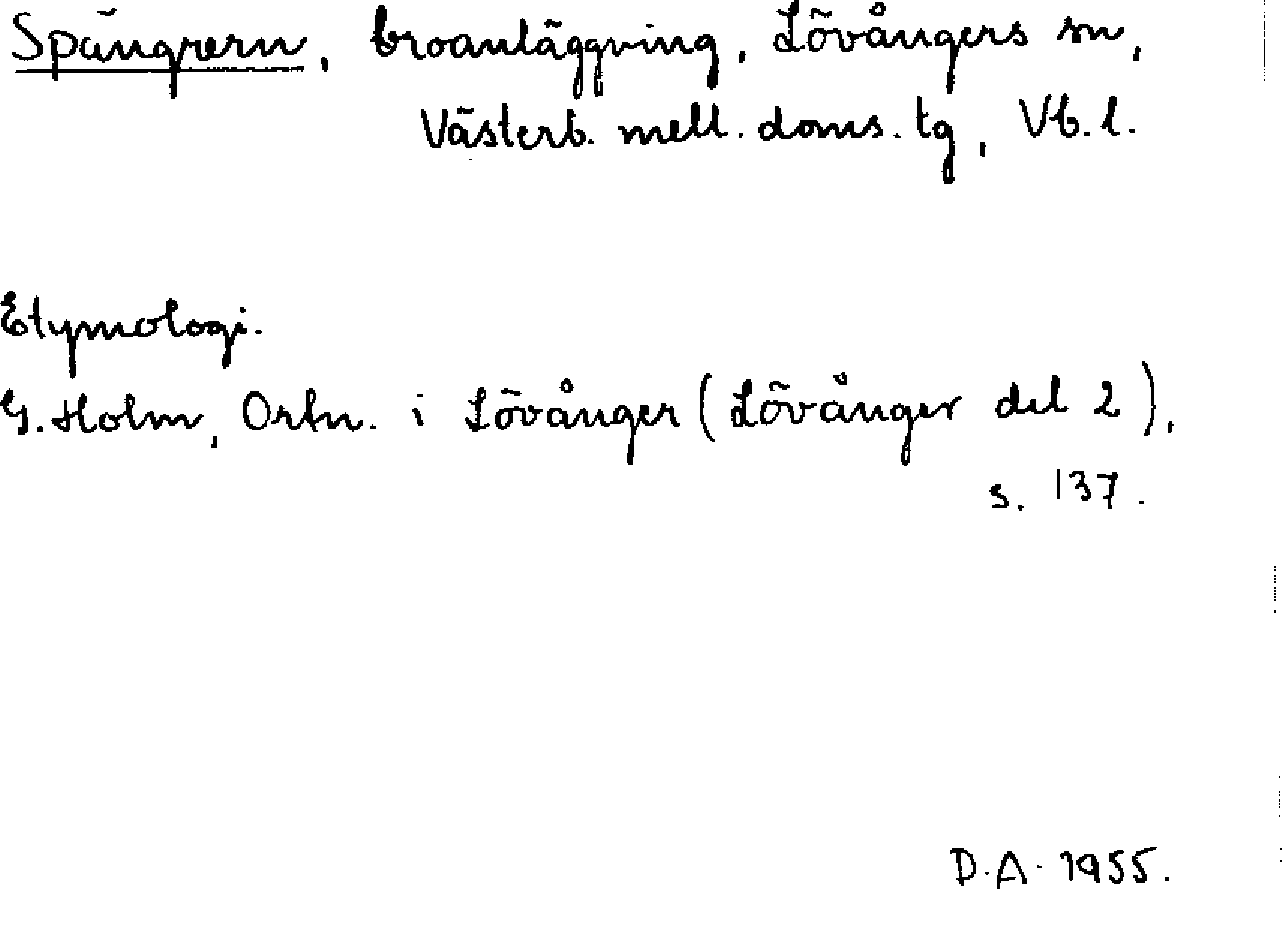 Spängrern, broanläggning, Lövångers sn,
Västerb. mell. doms. tg, Vb. l.
Etymologi.
G. Holm, Ortn. i Lövånger (Lövånger del 2),
s. 137.
D.A. 1955.